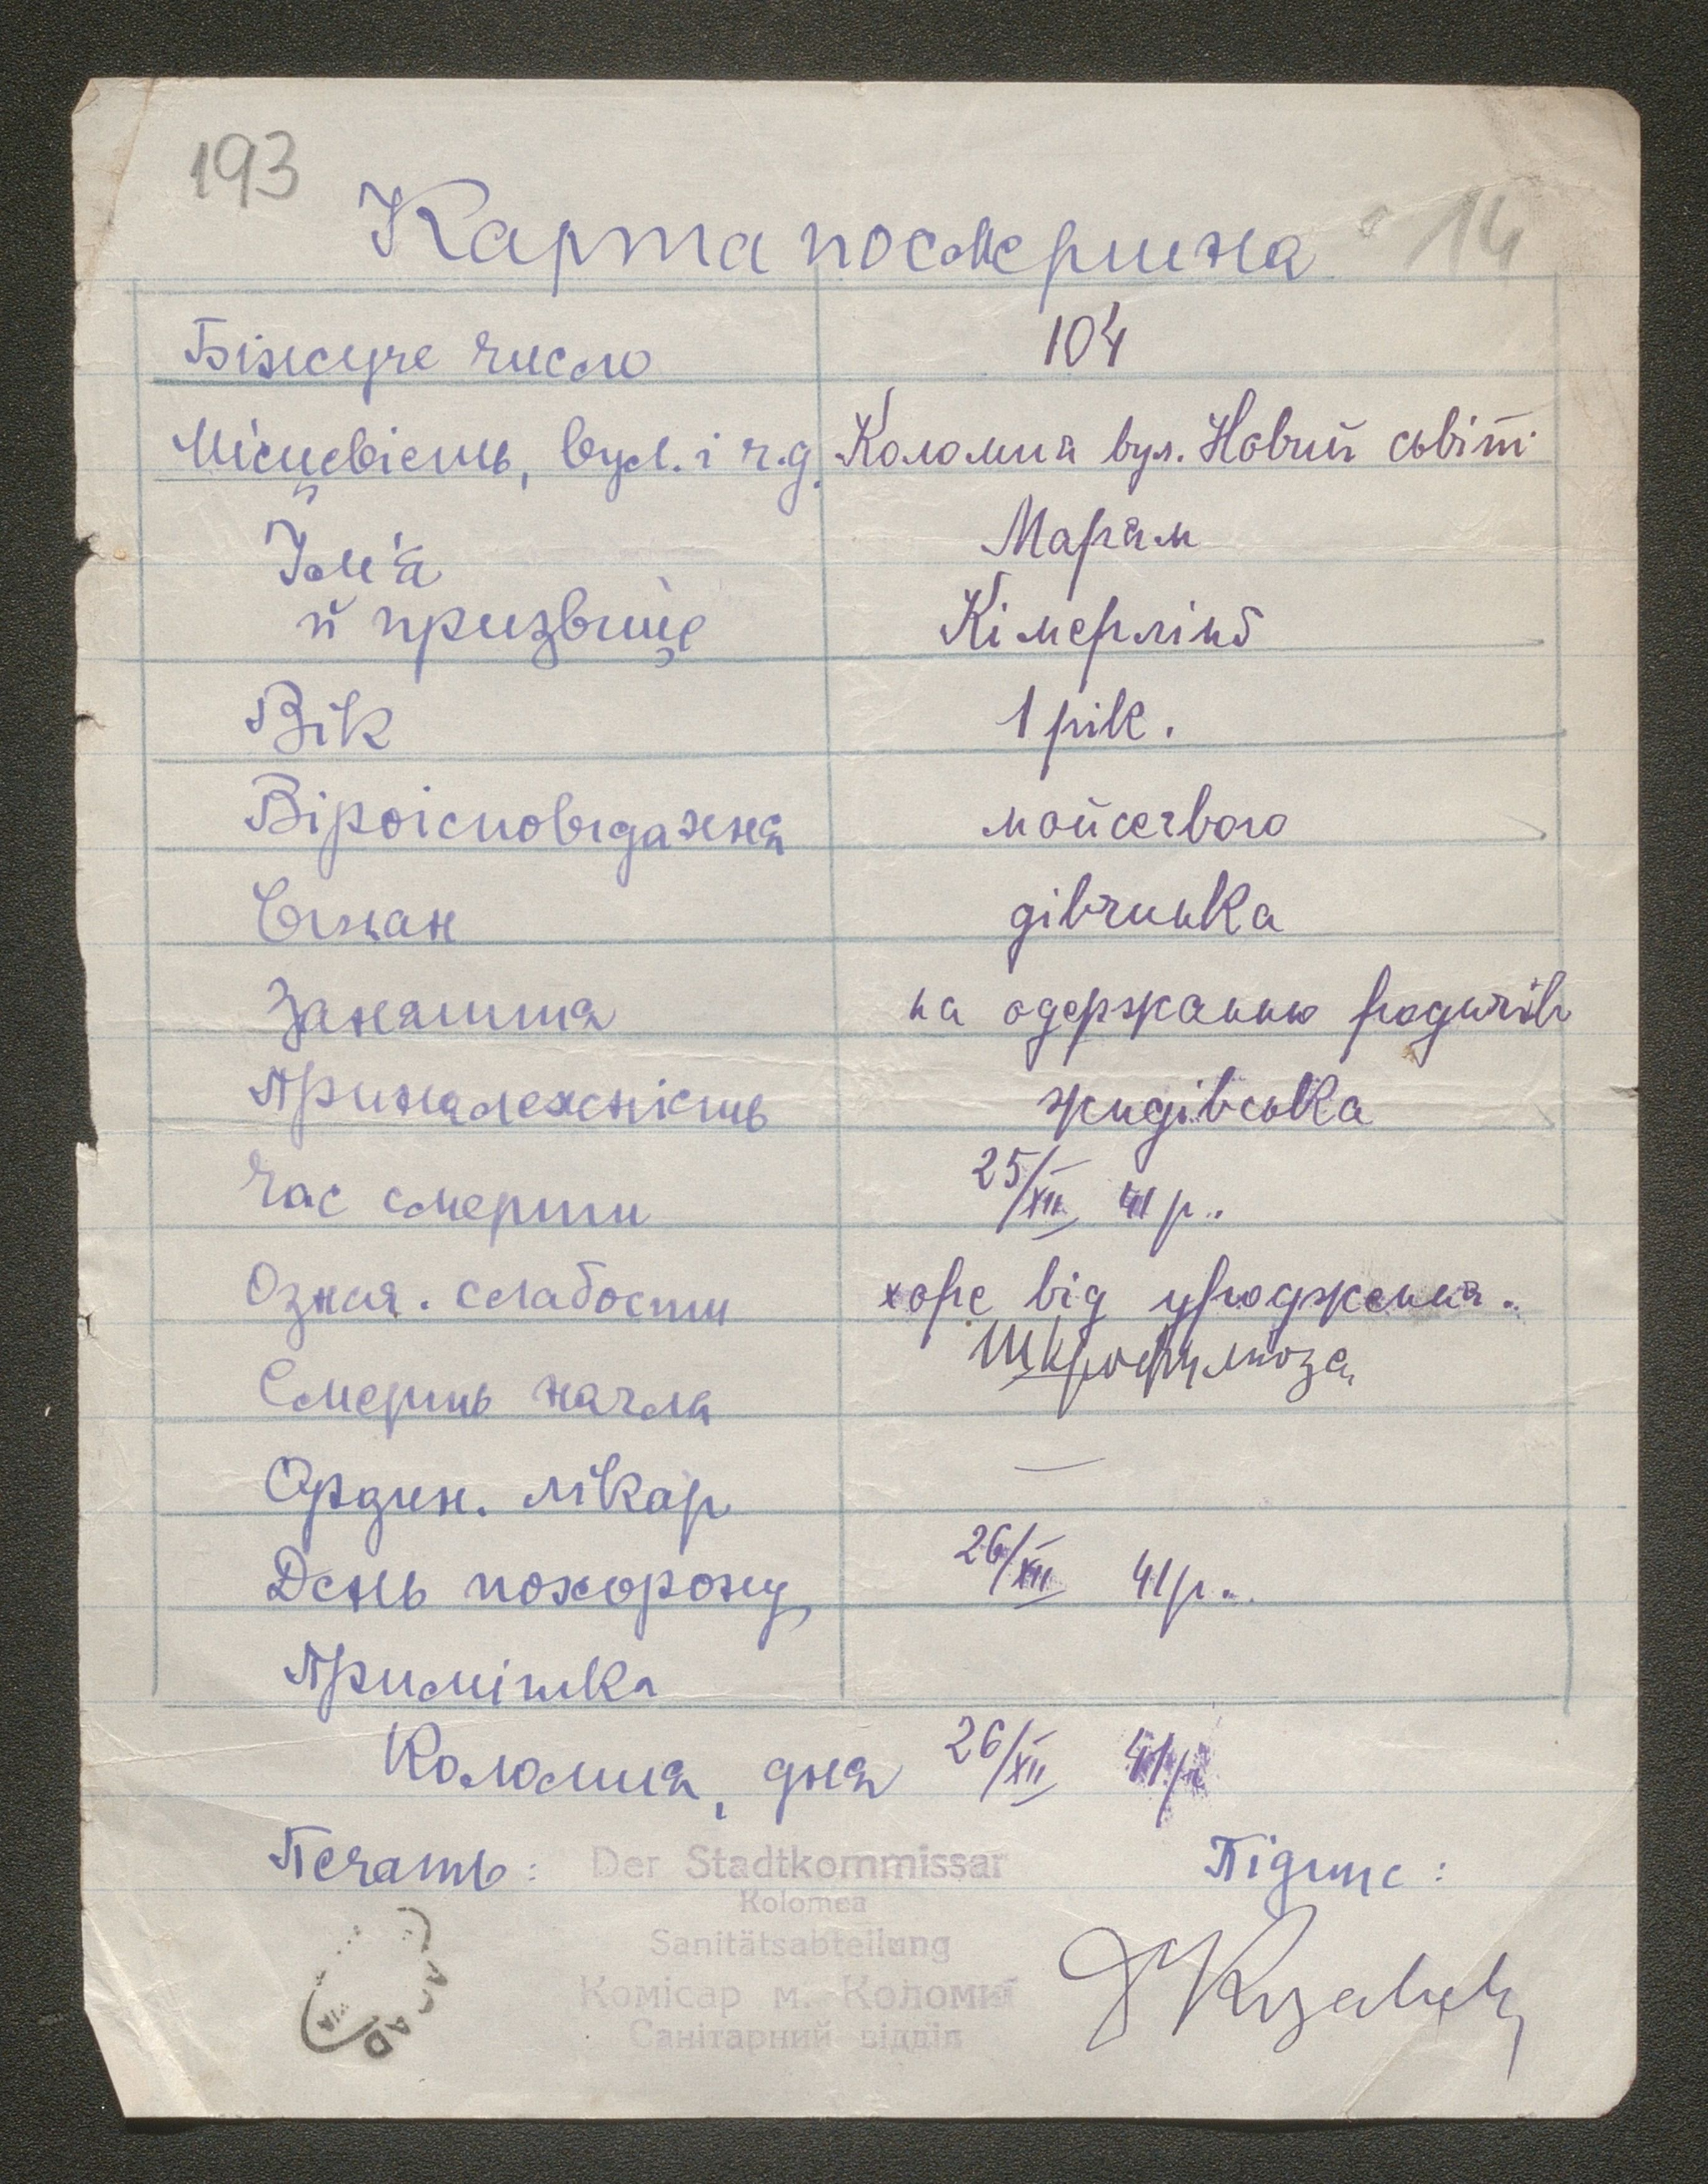 193
Карта посмертна 14
Біжуче число 104
Місцевість, вул. і ч.д. Коломия вул. Новий сьвіт
Ім'я Марям
й призвище Кімерлінб
Вік 1 рік.
Віроісповідання мойсеєвого
Стан дівчинка
Заняття на одержанню родичів
Приналежність жидівська
Час смерти 25/XII 41 р.
Означ. слабости хоре від уродження.
Шкрофульоза
Смерть нагла
Ордин. лікар —
День похорону 26/XII 41 р.
Примітка
Коломия, дня 26/XII 41 р
Печать: Підпис:
Der Stadtkommissar
Kolomea
Sanitätsabteilung
Комісар м. Коломиї
Санітарний відділ